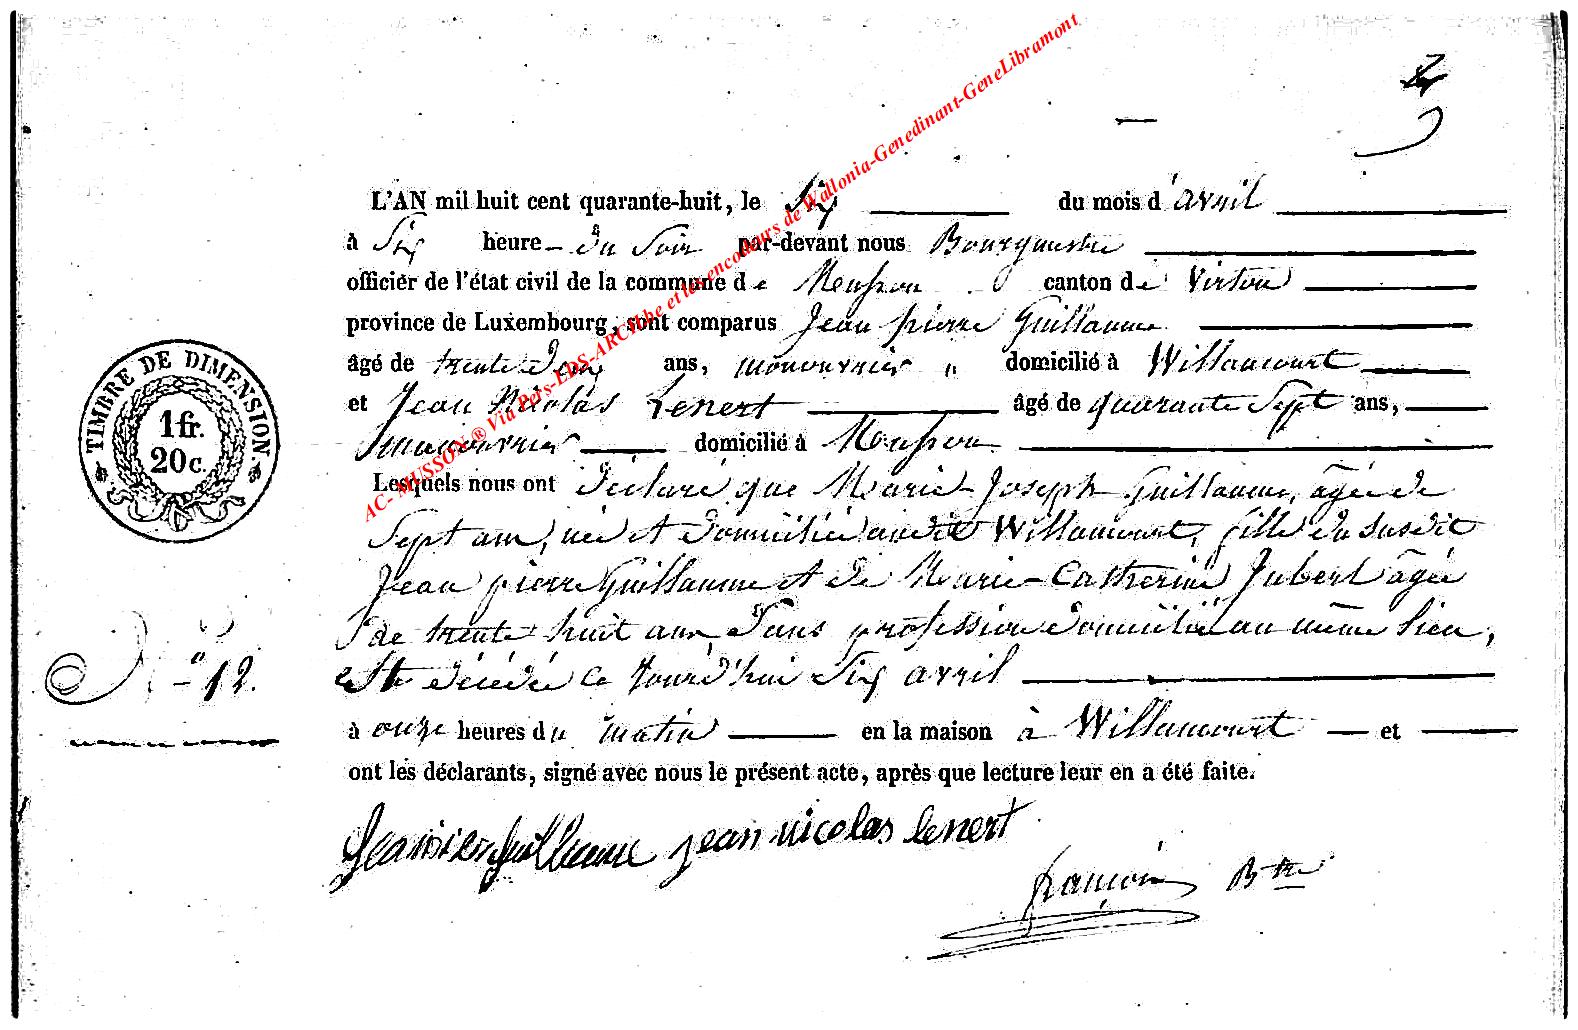 L'AN mil huit cent quarante-huit, le Six du mois d'avril
à Six heure du Soir par-devant nous Bourgmestre
officier de l'état civil de la commune de Musson canton de Virton
province de Luxembourg, sont comparus Jean pierre Guillaume
âgé de trente Deux ans, manouvrier domicilié à Willancourt
et Jean Nicolas Lenert âgé de quarante Sept ans,
manouvrier domicilié à Musson
Lesquels nous ont Déclaré que Marie-Joseph Guillaume, agée de
Sept ans, née et Domiciliée audit Willancourt, fille du Susdit
Jean pierre Guillaume et de Marie-Catherine Jubert agée
de trente huit ans, Sans profession Domiciliée au même lieu,
est Décédée ce Jourd'hui Six avril
N° 12.
à onze heures du matin en la maison à Willancourt et
ont les déclarants, signé avec nous le présent acte, après que lecture leur en a été faite.
Jeanpierguillaume jean nicolas lenert
françois Btre
TIMBRE DE DIMENSION.
1 fr.
20 c.
AC- MUSSON ® Via Pers-EDS-ARCH.be et les encodeurs de Wallonia-Genedinant-GeneLibramont